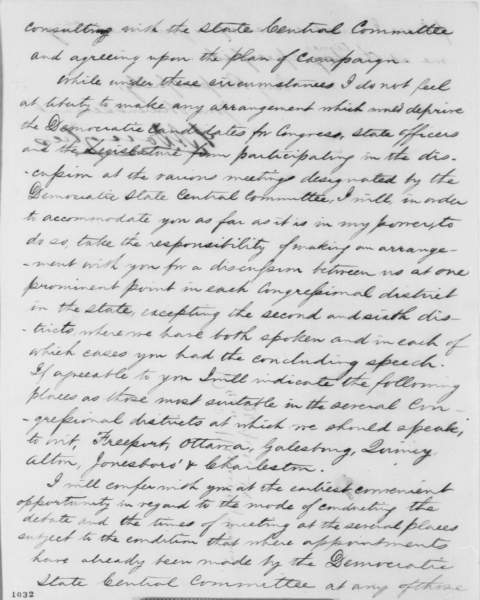 consulting with the State Central Committee
and agreeing upon the plan of Campaign.
While under these circumstances I do not feel
at liberty to make any arrangement which would deprive
the Democratic Candidates for Congress, State officers
and the Legislature from participating in the dis-
-cussion at the various meetings designated by the
Democratic State Central Committee, I will, in order
to accommodate you as far as it is in my power, to
do so, take the responsibility of making an arrange-
-ment with you for a discussion between us at one
prominent point in each Congressional district
in the State, excepting the second and sixth dis-
-tricts, where we have both spoken and in each of
which cases you had the concluding speech.
If agreeable to you I will indicate the following
places as those most suitable in the several Con-
-gressional districts at which we should speak,
to wit, Freeport, Ottawa, Galesburg, Quincy
Alton, Jonesboro' & Charleston.
I will confer with you at the earliest convenient
opportunity in regard to the mode of conducting the
debate and the times of meeting at the several places
subject to the condition that where appointments
have already been made by the Democratic
State Central Committee at any of those
1032